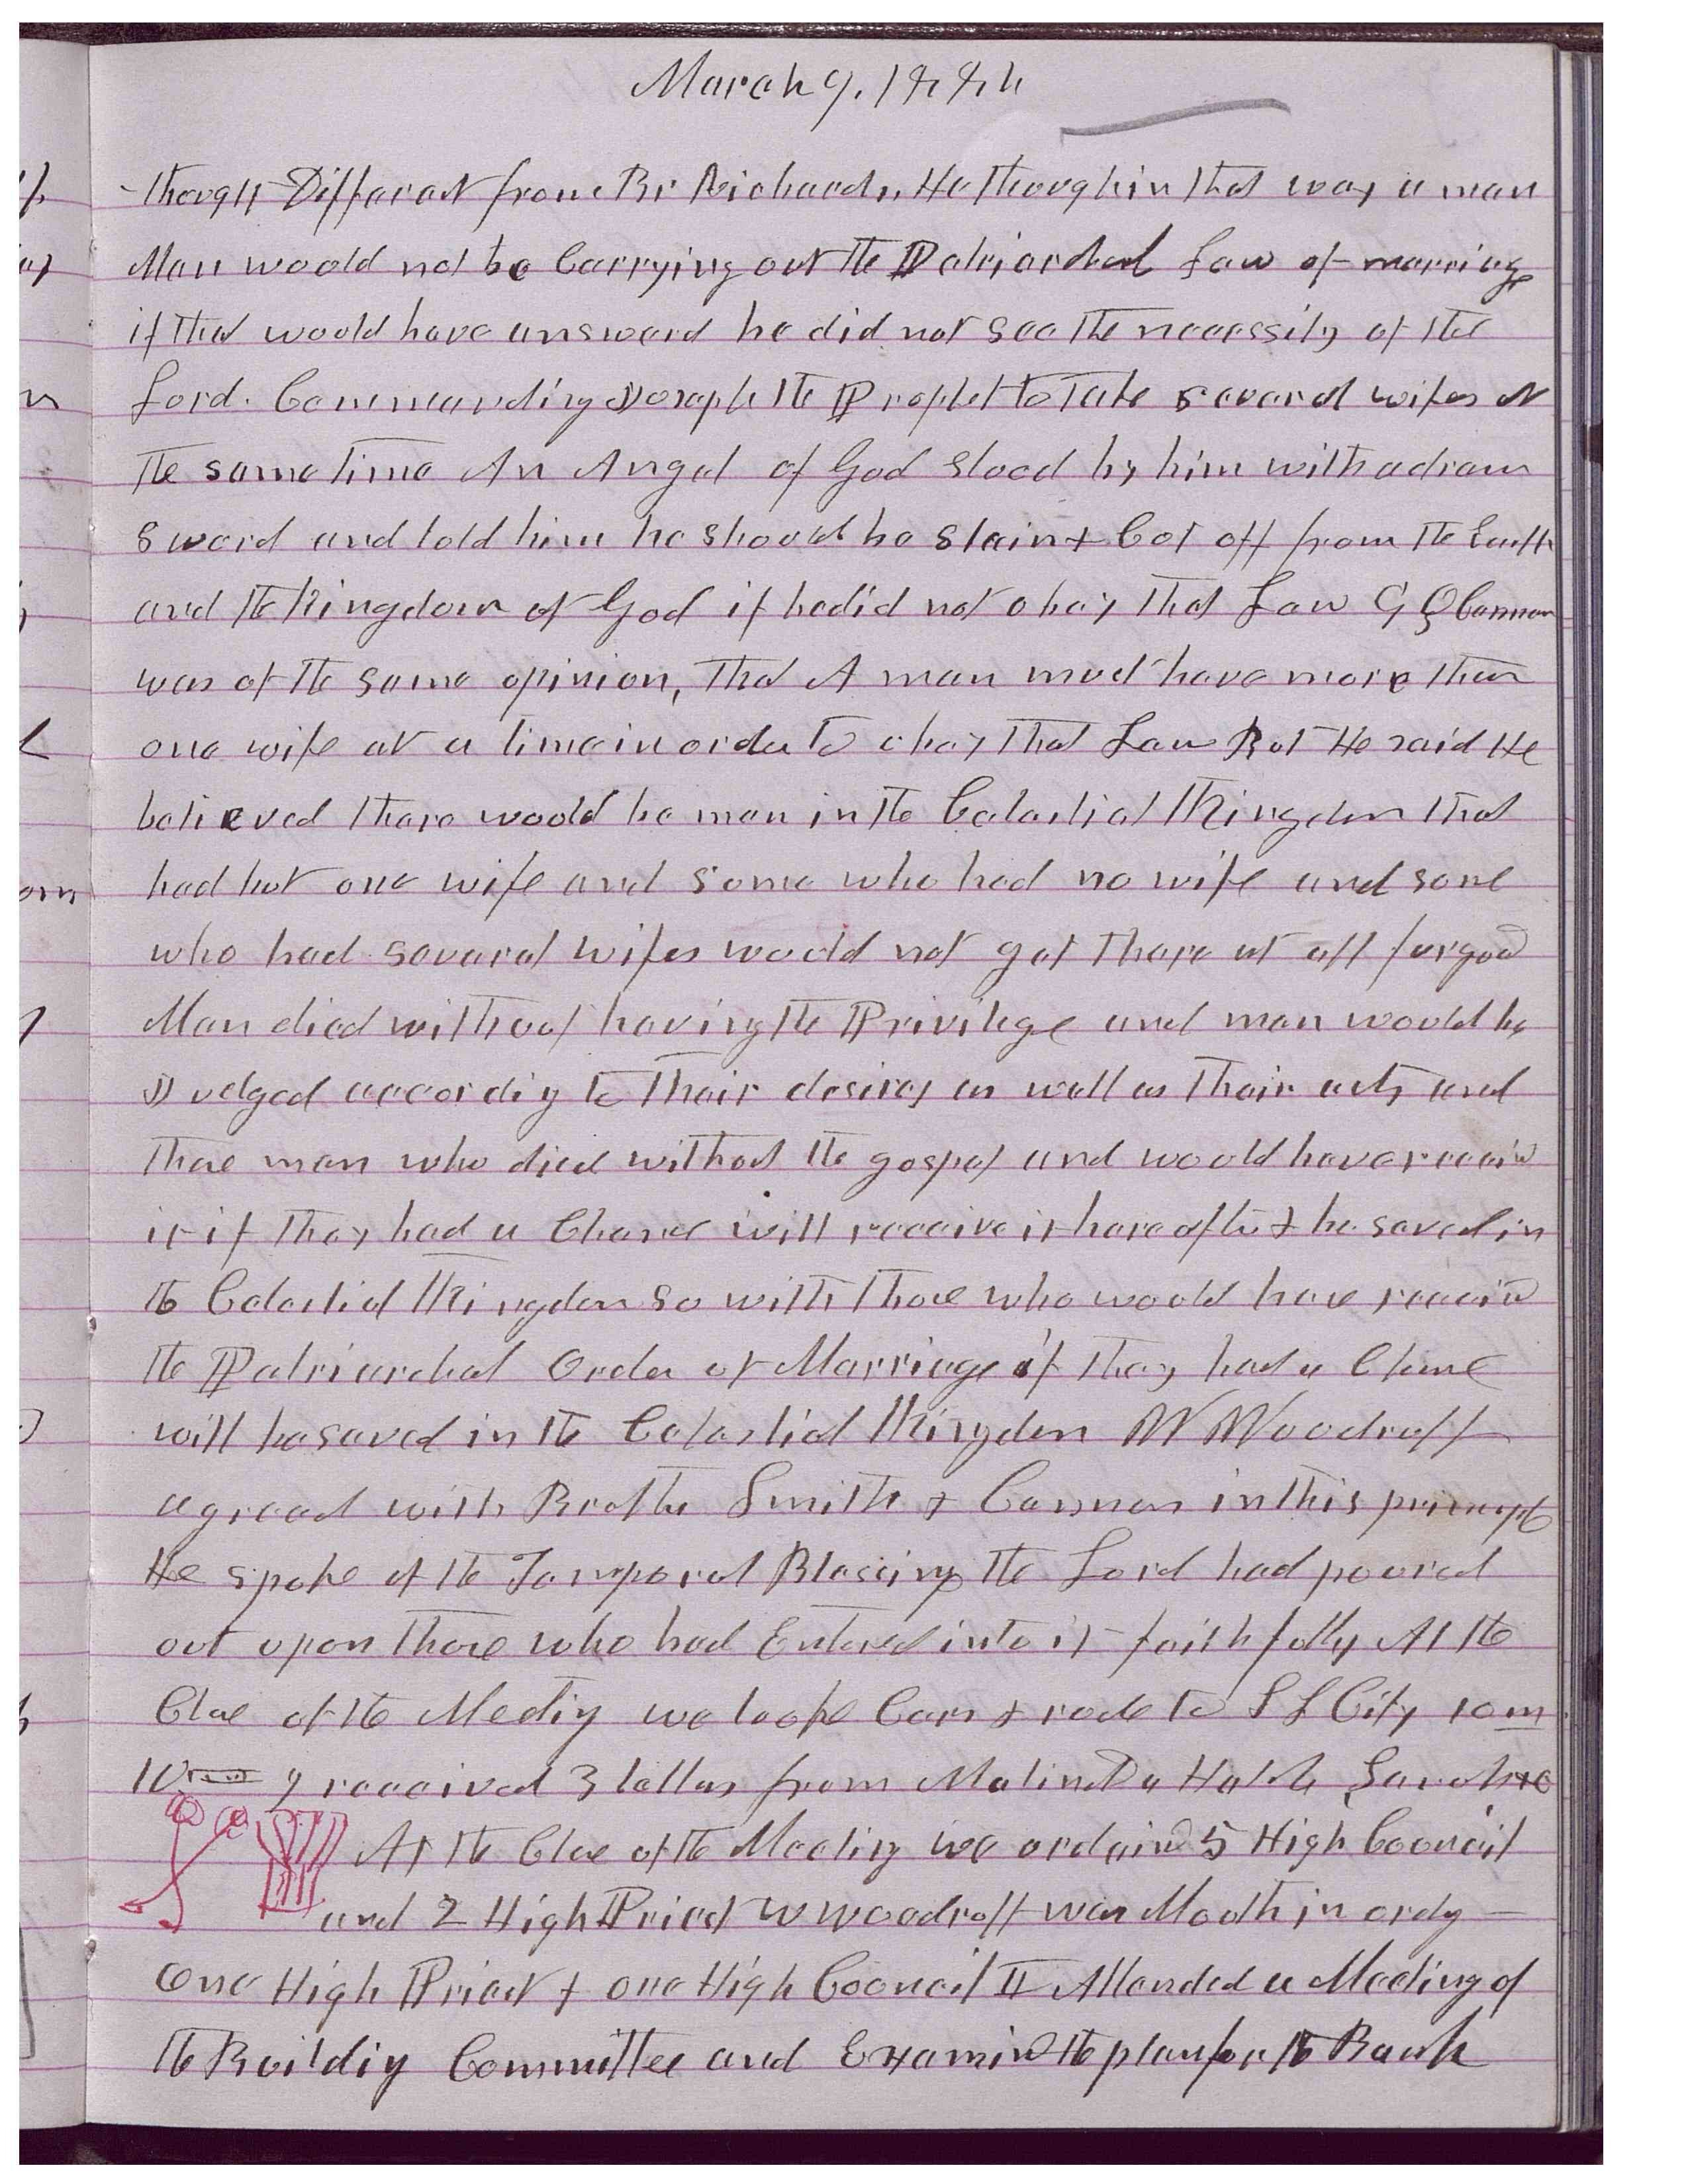 March 9, 1884
thought Different from Br Richards, He though in that way a man
Man would not be Carrying out the Patriarchal Law of marriage
if that would have answerd he did not see the necessity of the
Lord. Commanding Joseph the Prophet to take several wifes at
the same time An Angel of God stood by him with a drawn
sword and told him he should be slain & Cut off from the Earth
and the Kingdom of God if he did not obey that Law G Q Cannon
was of the same opinion, that A man must have more than
one wife at a time in order to obey that Law But He said He
believed there would be men in the Celestial Kingdom that
had but one wife and some who had no wife and some
who had several wifes would not get there at all for good
Men died without having the Privilege and man would be
Judged accordig to their desires as well as their acts and
those men who died without the gospel and would have receivd
it if they had a Chance will receive it hereafter & be saved in
the Celestial Kingdom so with those who would have receivd
the Patriarchal Order of Marriage if they had a Chance
will be saved in the Celestial Kingdom W Woodruff
agreed with Brother Smith & Cannon in this principle
He spoke of the Temporal Blessings the Lord had poured
out upon those who had Entered into it faithfully At the
Close of the Meetig we took Cars & rode to S L City 10 m
10 I received 3 letters from Malinda Hatch, Sarah
At the Close of the Meeting we ordaind 5 High Council
and 2 High Priest W Woodruff was Mouth in ordg
one High Priest & one High Council II Attended a Meeting of
the Buildig Committee and Examind the plan for the Bank
um
orn